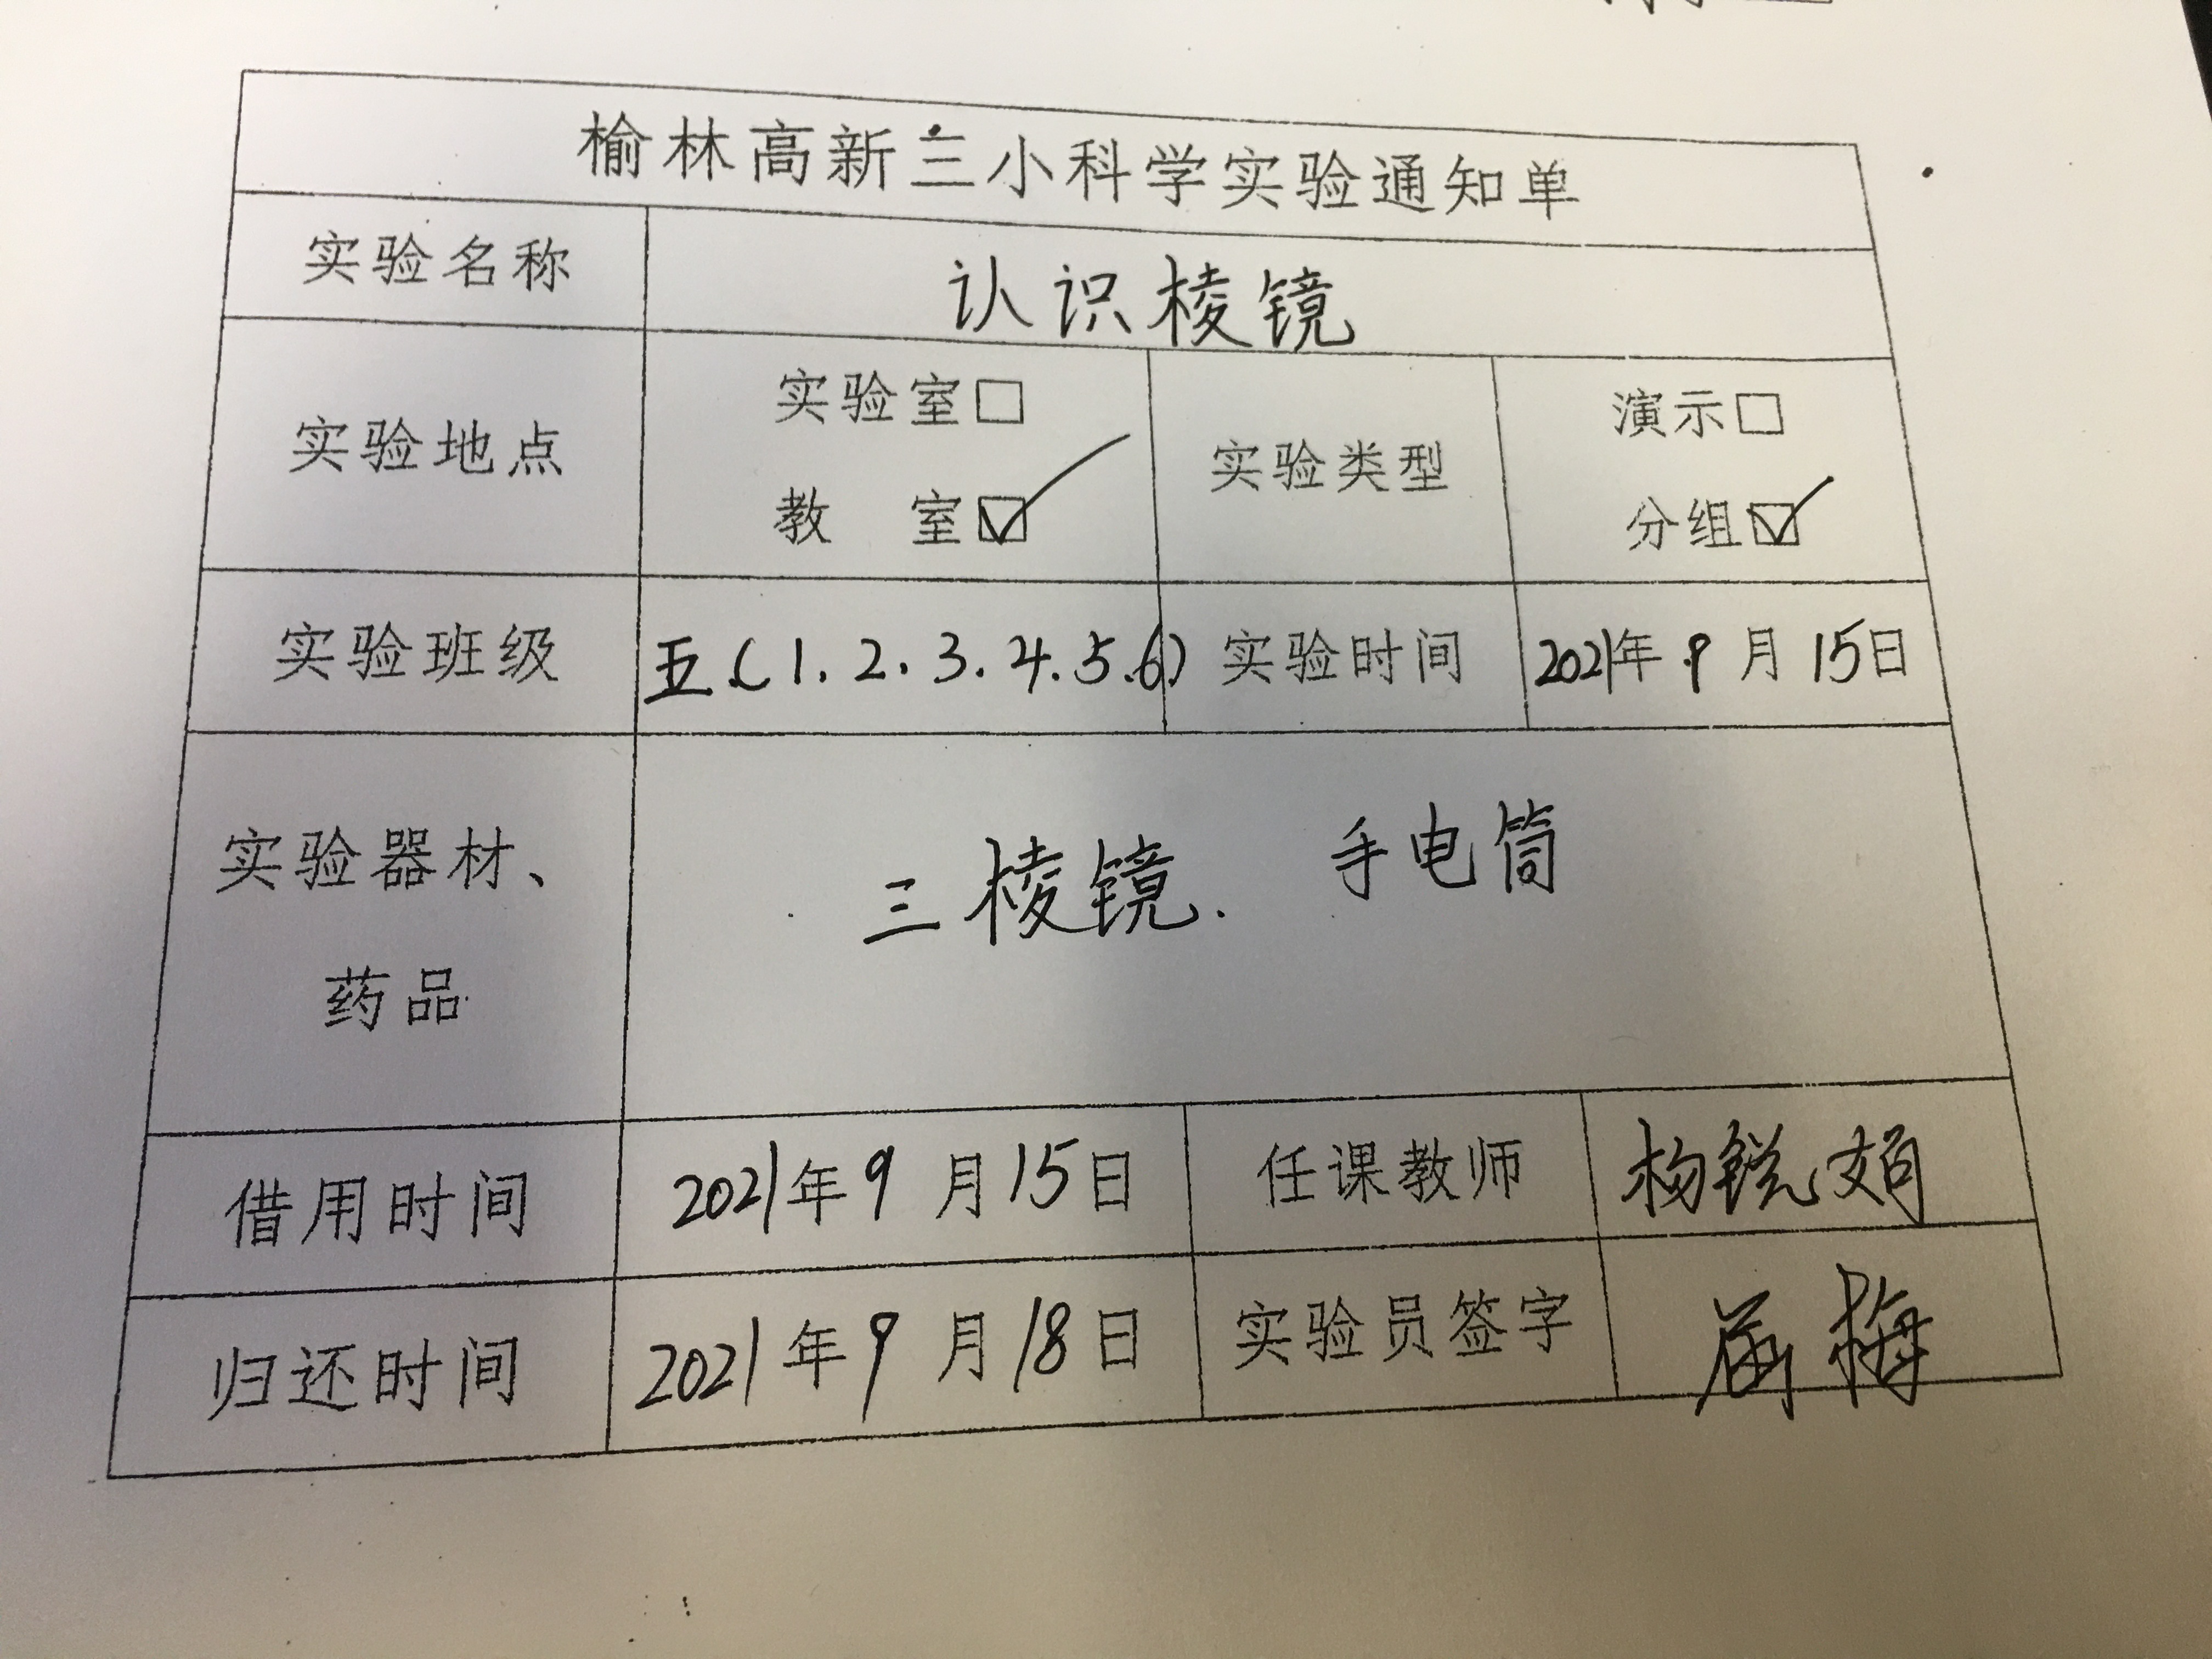 榆林高新三小科学实验通知单
实验名称 认识棱镜
实验地点 实验室□ 教 室☑ 实验类型 演示□ 分组☑
实验班级 五(1.2.3.4.5.6) 实验时间 2021年9月15日
实验器材、药品 三棱镜. 手电筒
借用时间 2021年9月15日 任课教师 杨锐娟
归还时间 2021年9月18日 实验员签字 梅